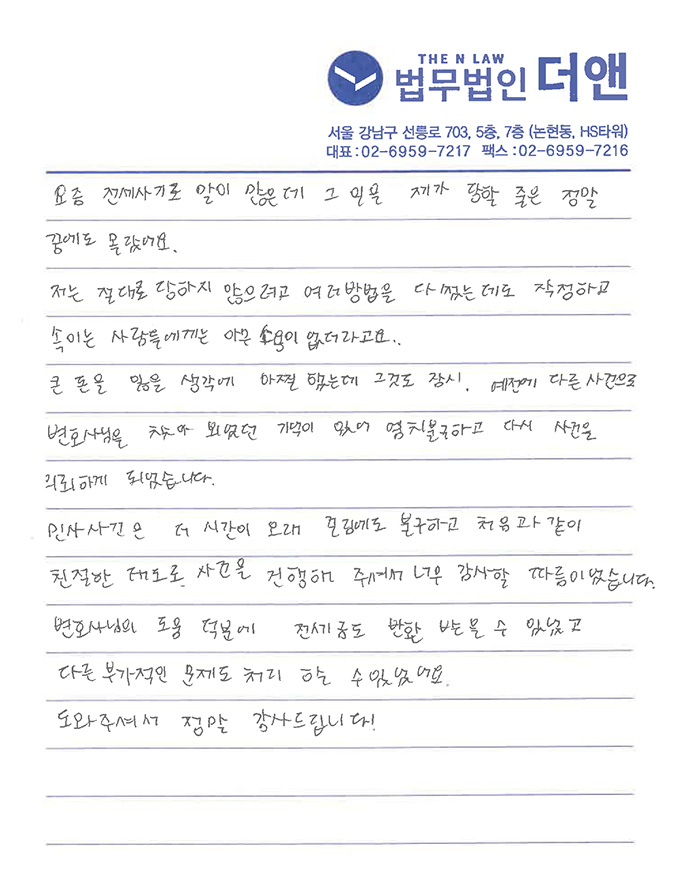 THE N LAW
법무법인 더앤
서울 강남구 선릉로 703, 5층, 7층 (논현동, HS타워)
대표:02-6959-7217 팩스:02-6959-7216
요즘 전세사기로 말이 많은데 그 일을 제가 당할 줄은 정말
꿈에도 몰랐어요.
저는 절대로 당하지 않으려고 여러방법을 다 썼는데도 작정하고
속이는 사람들에게는 아무 소용이 없더라고요..
큰 돈을 잃을 생각에 아찔 했는데 그것도 잠시. 예전에 다른 사건으로
변호사님을 찾아 뵈었던 기억이 있어 염치불구하고 다시 사건을
의뢰하게 되었습니다.
민사사건은 더 시간이 오래 걸림에도 불구하고 처음과 같이
친절한 태도로 사건을 진행해 주셔서 너무 감사할 따름이었습니다.
변호사님의 도움 덕분에 전세금도 반환 받을 수 있었고
다른 부가적인 문제도 처리 할 수 있었어요.
도와주셔서 정말 감사드립니다!